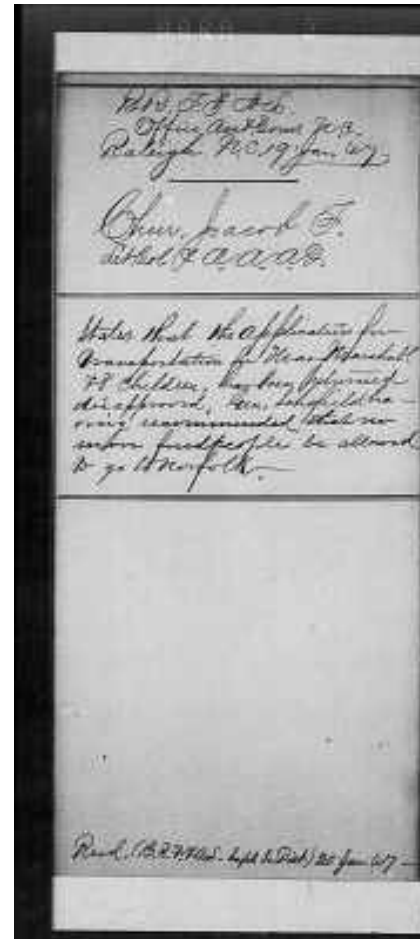 Bu. R. F. & A. L.
Office Asst Comr N. C.
Raleigh N.C. 19 Jan 67
Chur, Jacob F.
Lt Col & A. A. A. G.
States that the application for
Transportation for Marshall
& 8 children, has been returned
disapproved, Gen. having
recommended that no
more freedpeople be allowed
to go to Norfolk.
Recd. (B. R. F. & A. L. Dist) Jan 67